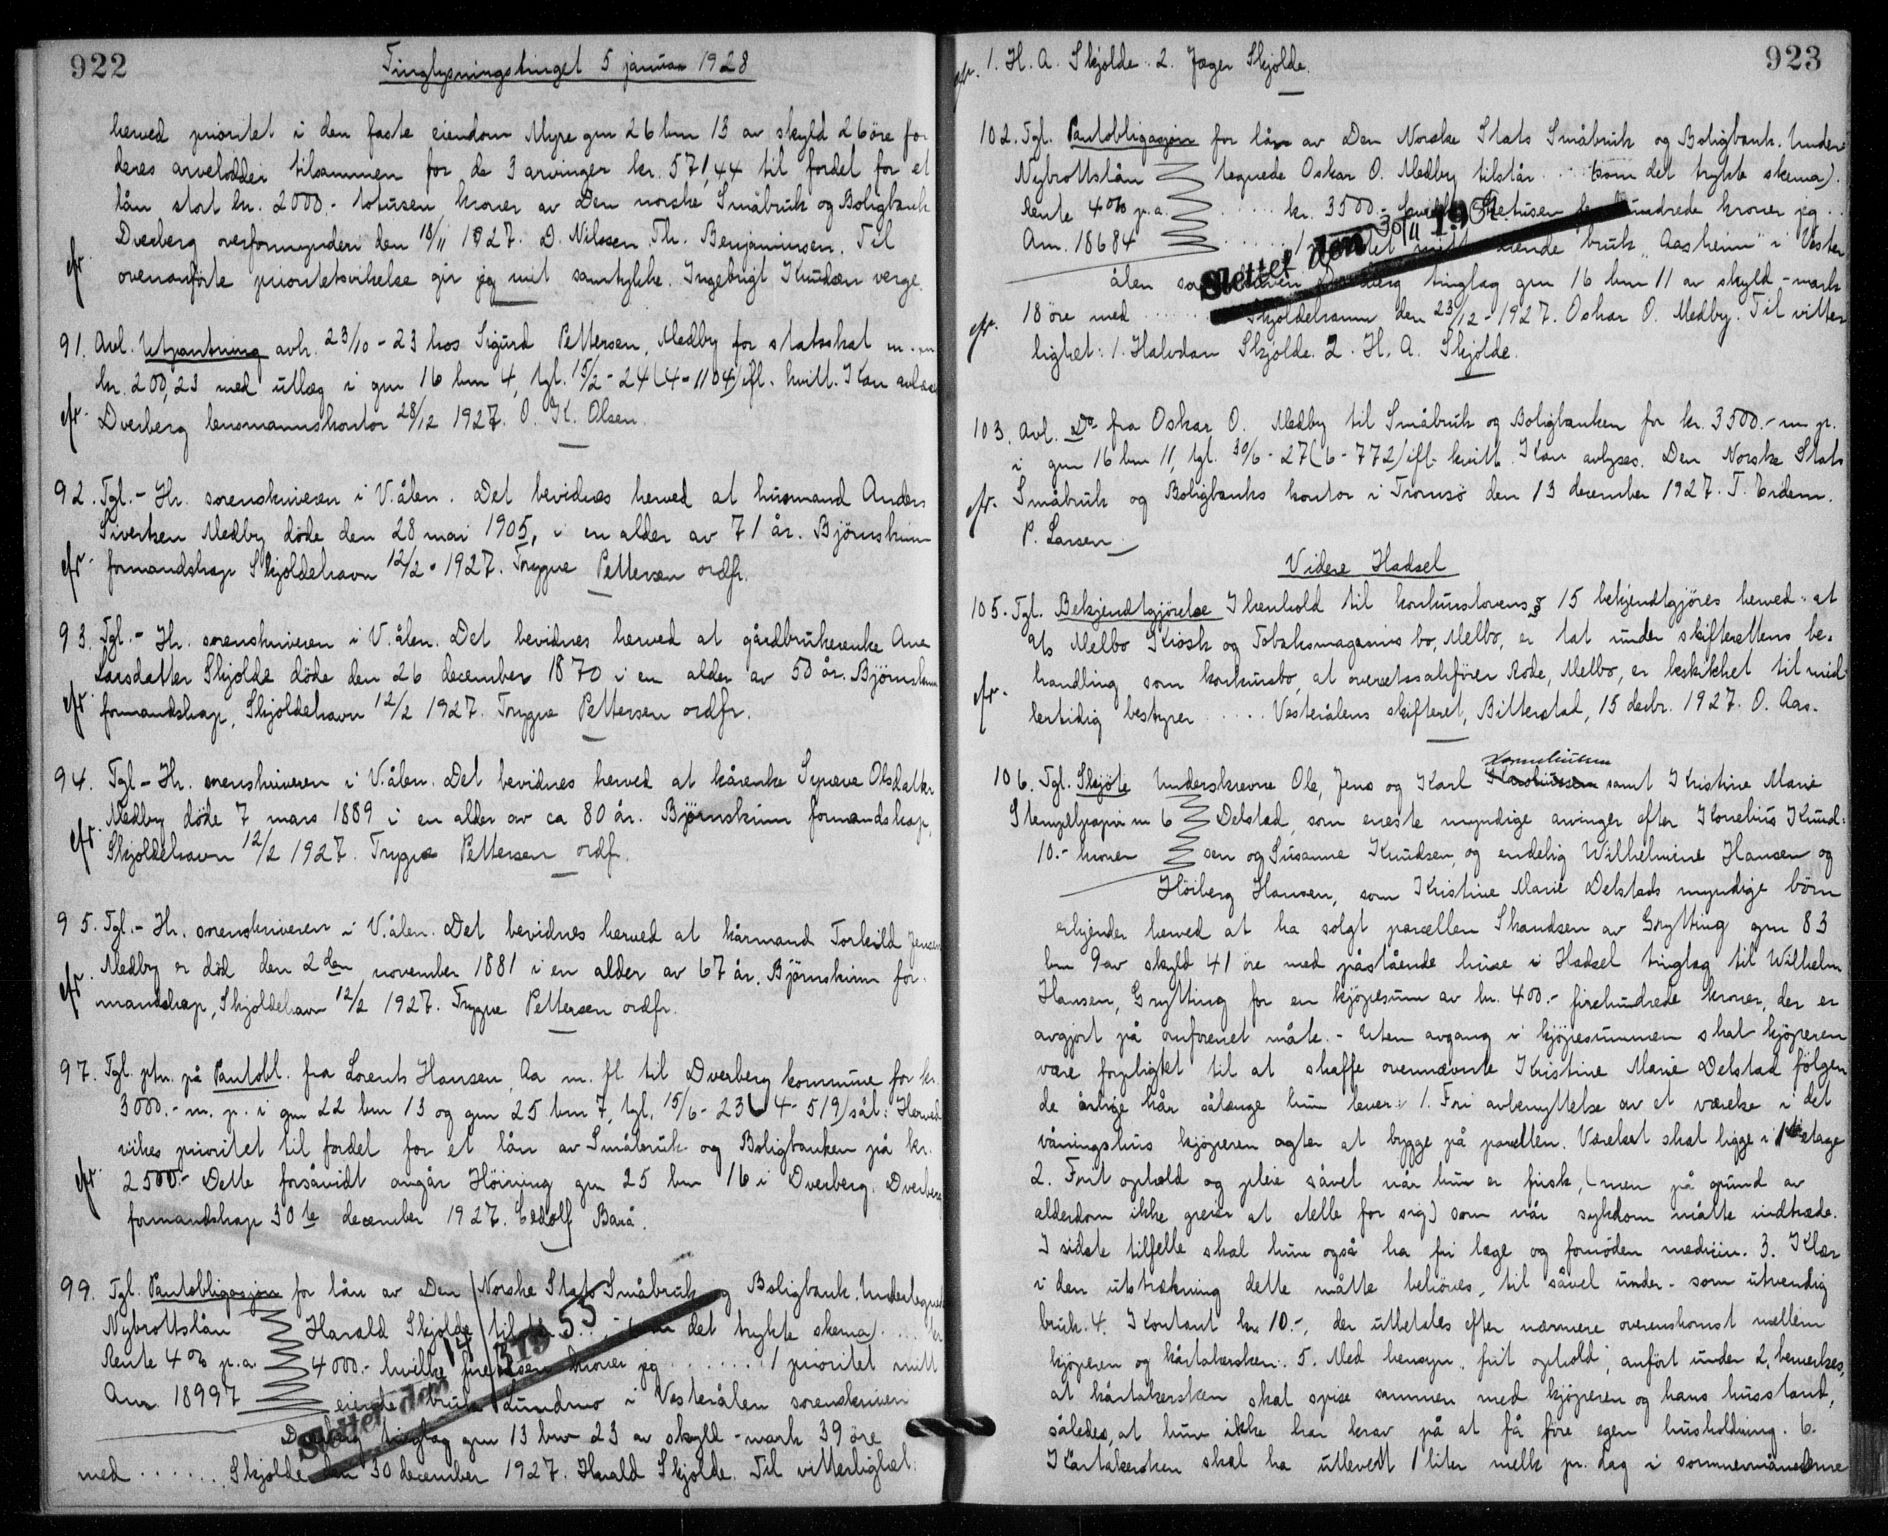 922
Tinglysningstinget 5 januar 1928
herved prioritet i den faste eiendom Myre gnr 26 bnr 13 av skyld 26 öre for
deres arvelodder tilsammen for de 3 arvinger kr. 571,44 til fordel for et
lån stort kr. 2000.- totusen kroner av Den norske Småbruk og Boligbank
Dverberg overformynderi den 18/11 1927. D. Nilssen. Th. Benjaminsen. Til
efr. ovenanförte prioritetsvikelse gir jeg mit samtykke. Ingebrigt Knudsen verge.
91. Avl. Utpantning avh. 23/10 - 23 hos Sigurd Pettersen, Medby for statsskat m.m
kr. 200,23 med utlæg i gnr 16 bnr 4, tgl. 15/2 - 24 (4-1104) ifl. kvitt. Kan avlæses
efr. Dverberg lensmannskontor 28/12 1927. O. K. Olsen.
92. Tgl.- Hr. sorenskriveren i V.ålen. Det bevidnes herved at husmand Anders
Sivertsen Medby döde den 28 mai 1905, i en alder av 71 år. Björnskinn
efr. formandskap Skjoldehavn 12/2 - 1927. Trygve Pettersen ordfr.
93. Tgl.- Hr. sorenskriveren i V.ålen. Det bevidnes herved at gårdbrukerenke Ane
Larsdatter Skjolde döde den 26 december 1870 i en alder av 50 år. Björnskinn
efr. formandskap, Skjoldehavn 12/2 1927. Trygve Pettersen ordfr.
94. Tgl - Hr. sorenskriveren i V.ålen. Det bevidnes herved at kårenke Synøve Olsdatter
Medby döde 7 mars 1889 i en alder av ca 80 år. Björnskinn formandskap,
efr. Skjoldehavn 12/2 1927. Trygve Pettersen ordf.
95. Tgl.- Hr. sorenskriveren i V.ålen. Det bevidnes herved at kårmand Torkild Jensen
Medby er död den 2den november 1881 i en alder av 67 år. Björnskinn for-
efr. mandskap, Skjoldehavn 12/2 1927. Trygve Pettersen ordfr.
97. Tgl. ptn. på Pantobl. fra Lorents Hansen, Aa m. fl. til Dverberg kommune for kr.
3000.- m. p. i gnr 22 bnr 13 og gnr 25 bnr 7, tgl. 15/6 - 23 (4-519) sål: Herved
vikes prioritet til fordel for et lån av Småbruk og Boligbanken på kr.
efr. 2500.- Dette forsåvidt angår Höining gnr 25 bnr 16 i Dverberg. Dverberg
formandskap 30te december 1927. Edolf Barå.
99. Tgl. Pantobligasjon for lån av Den Norske Stats Småbruk og Boligbank. Undertegnede
Nybrottslån Harald Skjolde tilstår ... (som det trykte skema) ... kr
Rente 4 % p.a. 4000.- hvilke firetusen kroner jeg ....... 1 prioritet mitt
Anr. 18997 eiende bruk Lundmo i Vesterålen sorenskriveri
Slettet den 14/3 1955
Dverberg tinglag gnr 13 bnr 23 av skyld - mark 39 öre
med ....... Skjolde den 30 december 1927. Harald Skjolde. Til vitterlighet:
923
efr. 1. H. A. Skjolde. 2. Jæger Skjolde.
102. Tgl. Pantobligasjon for lån av Den Norske Stats Småbruk og Boligbank. Under-
Nybrottslån tegnede Oskar O. Medby tilstår .... (som det trykte skema).
Rente 4 % p.a. ..... kr. 3500.- hvilke tretusen fem hundrede kroner jeg ..
Anr. 18684 ...... 1 prioritet mitt eiende bruk "Aasheim" i Vester-
Slettet den 30/11 19
ålen sorenskriveri Dverberg tinglag gnr 16 bnr 11 av skyld - mark
18 öre med ...... Skjoldehavn den 23/12 - 1927. Oskar O. Medby. Til vitter-
efr. lighet: 1. Halvdan Skjolde. 2. H. A. Skjolde.
103. Avl. Do fra Oskar O. Medby til Småbruk og Boligbanken for kr. 3500.- m p.
i gnr 16 bnr 11, tgl. 30/6 - 27 (6-772) ifl. kvitt. Kan avlyses. Den Norske Stats
efr. Småbruk og Boligbanks kontor i Tromsö den 13 december 1927. T. Eidem.
P. Larsen
Videre Hadsel
105. Tgl. Bekjendtgjörelse I henhold til konkurslovens § 15 bekjendtgjöres herved: at
A/s Melbo Kiosk og Tobaksmagasins bo, Melbo, er tat under skifterettens be-
handling som konkursbo, at overretssakförer Rode, Melbo, er beskikket til mid-
efr. lertidig bestyrer ..... Vesterålens skifteret, Bitterstad, 15 decbr. 1927. O. Aas.
106. Tgl. Skjöte Underskrevne Ole, Jens og Karl Karoliussen Korneliussen samt Kristine Marie
Stempelpapir nr 6 Delstad, som eneste myndige arvinger efter Kornelius Knud-
10.- kroner sen og Susanne Knudsen, og endelig Wilhelmine Hansen og
Höiberg Hansen, som Kristine Marie Delstads myndige börn
erkjender herved at ha solgt parcellen Skandsen av Grytting gnr 83
bnr 9 av skyld 41 öre med påstående huse i Hadsel tinglag til Wilhelm
Hansen, Grytting for en kjöpesum av kr. 400.- firehundrede kroner, der er
avgjort på omforenet måte. - Uten avgang i kjöpesummen skal kjöperen
være forpligtet til at skaffe ovennævnte Kristine Marie Delstad fölgen-
de årlige kår sålænge hun lever: 1. Fri avbenyttelse av et værelse i det
våningshus kjöperen agter at bygge på parcellen. Værelset skal ligge i 1ste etage
2. Frit ophold og pleie såvel når hun er frisk, (men på grund av
alderdom ikke greier at stelle for sig) som når sykdom måtte indtræde.
I sidste tilfelle skal hun også ha fri læge og fornöden medicin. 3. Klær
i den utstrækning dette måtte behöves, til såvel under- som utvendig
bruk. 4. Kontant kr 10.-, der utbetales efter nærmere overenskomst mellem
kjöperen og kårtakersken. 5. Med hensyn "frit ophold", anfört under 2, bemerkes,
at kårtakersken skal spise sammen med kjöperen og hans husstand,
således, at hun ikke har krav på at få före egen husholdning. 6.
Kårtakersken skal ha utlevert 1 liter melk pr. dag i sommermånederne